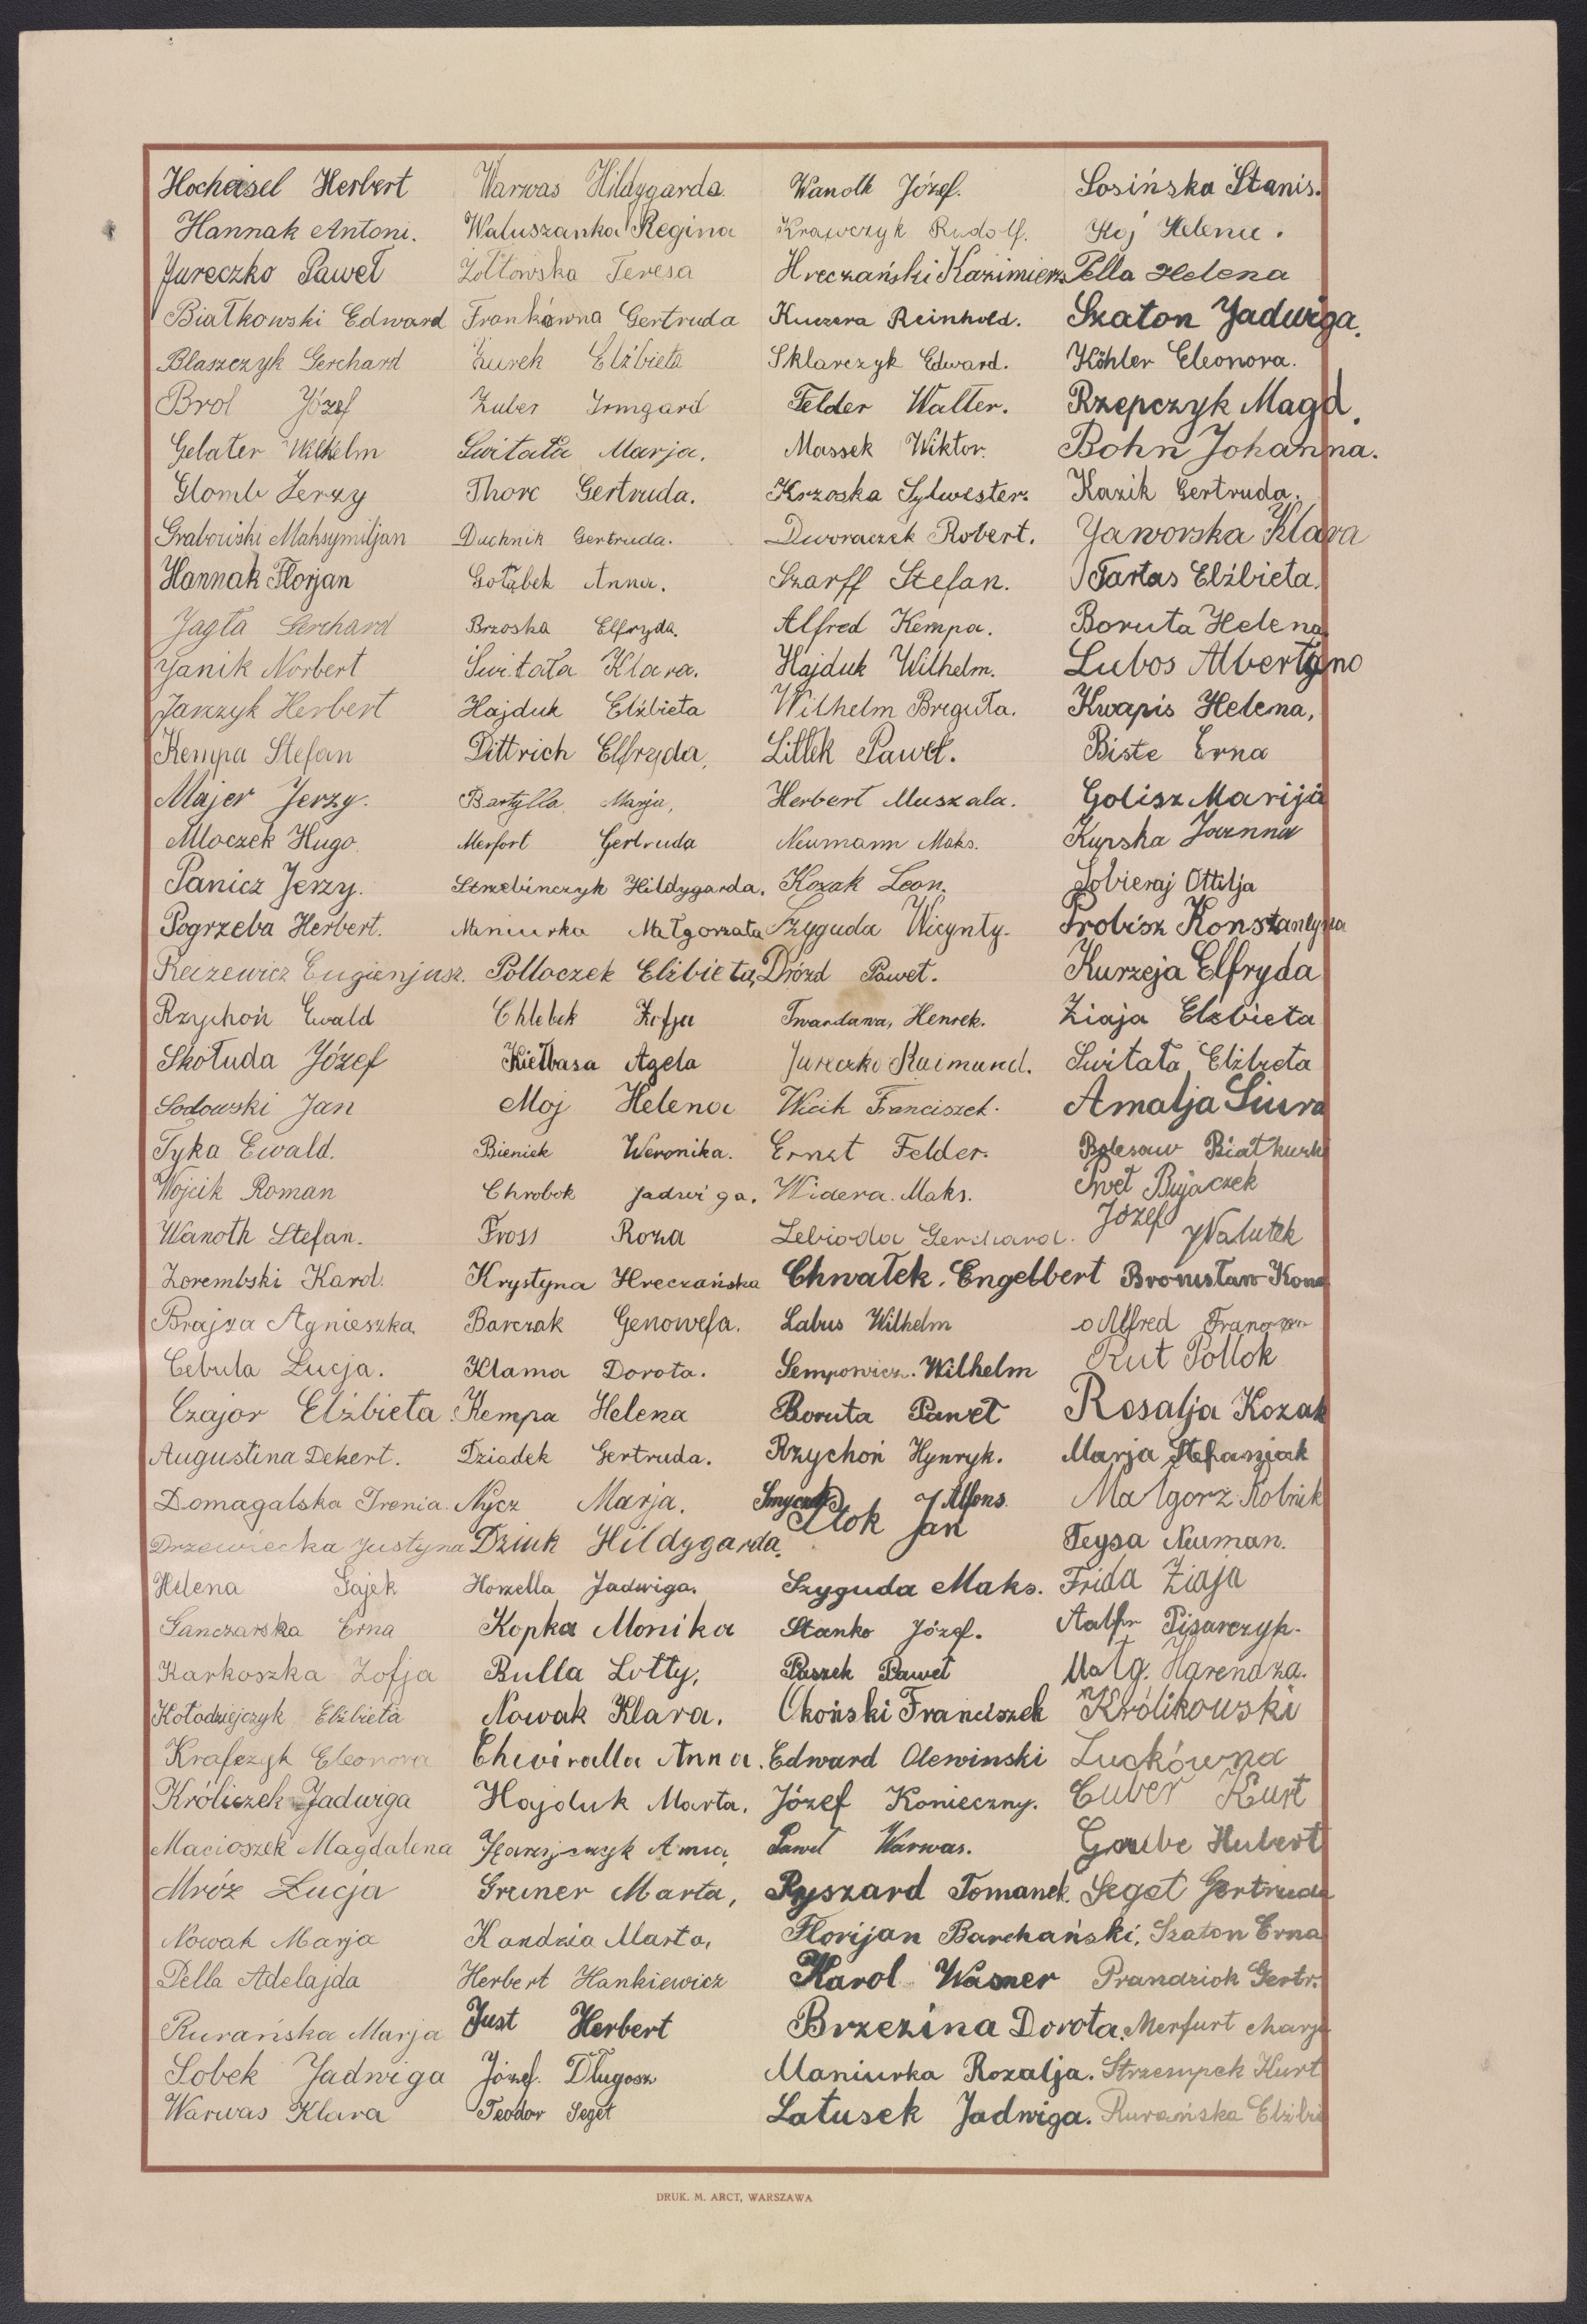 Hocheisel Herbert
Hannak Antoni.
Jureczko Paweł
Białkowski Edward
Blaszczyk Gerchard
Brol Józef
Gelater Wilhelm
Glomb Jerzy
Grabowski Maksymiljan
Hannak Florjan
Jagła Gerchard
Janik Norbert
Janczyk Herbert
Kempa Stefan
Majer Jerzy.
Mloczek Hugo.
Panicz Jerzy.
Pogrzeba Herbert.
Eugienjusz.
Rzychoń Ewald
Skołuda Józef
Sodowski Jan
Tyka Ewald.
Wojcik Roman
Wanoth Stefan.
Zorembski Karol.
Brajza Agnieszka.
Cebula Łucja.
Czajor Elżbieta.
Augustina Dekert.
Domagalska Irenia.
Drzewiecka Justyna
Helena Gajek
Ganczarska Erna
Karkoszka Zofja
Kołodziejczyk Elżbieta
Krafczyk Eleonora
Króliczek Jadwiga
Macioszek Magdalena
Mróz Łucja
Nowak Marja
Pella Adelajda
Rurańska Marja
Sobek Jadwiga
Warwas Klara
Warwas Hildygarda.
Waluszanka Regina
Żółtowska Teresa
Frankówna Gertruda
Żurek Elżbieta
Zuber Irmgard
Świtała Marja.
Thorc Gertruda.
Duchnik Gertruda.
Gołąbek Anna.
Brzoska Elfryda.
Świtała Klara.
Hajduk Elżbieta
Dittrich Elfryda,
Bartylla Marja,
Merfort Gertruda
Strzebinczyk Hildygarda.
Maniurka Małgorzata
Polloczek Elżbieta,
Chlebek Zofja
Kiełbasa Agela
Moj Helena
Bieniek Weronika.
Chrobok Jadwiga.
Fross Roza
Krystyna Hreczańska
Barczak Genowefa.
Klama Dorota.
Kempa Helena
Dziadek Gertruda.
Nycz Marja.
Dziuk Hildygarda.
Horzella Jadwiga.
Kopka Monika
Bulla Lotty,
Nowak Klara.
Chwiralla Anna.
Hajduk Marta.
Greiner Marta,
Kandzia Marta,
Herbert Hankiewicz
Just Herbert
Józef. Długosz
Teodor Seget
Wanoth Józef.
Krawczyk Rudolf.
Hreczański Kazimierz
Kuczera Reinhold.
Sklarczyk Edward.
Felder Walter.
Massek Wiktor.
Krzoska Sylwester.
Dworaczek Robert.
Szarff Stefan.
Alfred Kempa.
Hajduk Wilhelm.
Wilhelm Breguła.
Littek Paweł.
Herbert Muszala.
Neumann Maks.
Kozak Leon.
Szyguda Wicynty.
Drózd Paweł.
Twardawa, Henrek.
Jureczko Raimund.
Wicik Franciszek.
Ernst Felder.
Widera. Maks.
Lebioda Gerchard.
Chwałek. Engelbert
Labus Wilhelm
Sempowicz. Wilhelm
Boruta Paweł
Rzychoń Hynryk.
Alfons.
Ptok Jan
Szyguda Maks.
Stanko Józef.
Paszek Paweł
Okoński Franciszek
Edward Olewinski
Józef Konieczny.
Paweł Warwas.
Ryszard Tomanek.
Florijan Barchański.
Karol Wasner
Brzezina Dorota.
Maniurka Rozalja.
Latusek Jadwiga.
Sosińska Stanis.
Koj Helena.
Pella Helena
Szaton Jadwiga.
Köhler Eleonora.
Rzepczyk Magd.
Bohn Johanna.
Kazik Gertruda.
Jaworska Klara
Tartas Elżbieta.
Boruta Helena
Lubos
Kwapis Helena,
Biste Erna
Golisz Marija
Kupska Joanna
Sobieraj Ottilja
Probisz Konstantyna
Kurzeja Elfryda
Ziaja Elzbieta
Świtała Elżbieta
Amalja Siura
Bolesaw
Pweł Bujaczek
Józef Walutek
Bronisław Kona
Alfred
Rut Pollok
Rosalja Kozak
Marja Stefaniak
Małgorz. Rolnik
Teysa Neuman.
Frida Ziaja
Pisarczyk.
Małg. Harendza.
Królikowski
Luckówna
Cuber Kurt
Gaube Hubert
Seget Gertruda
Szaton Erna
Prandziok Gertr.
Merfurt Marja
Strzempek Kurt
Rurańska Elżbi
DRUK. M. ARCT, WARSZAWA